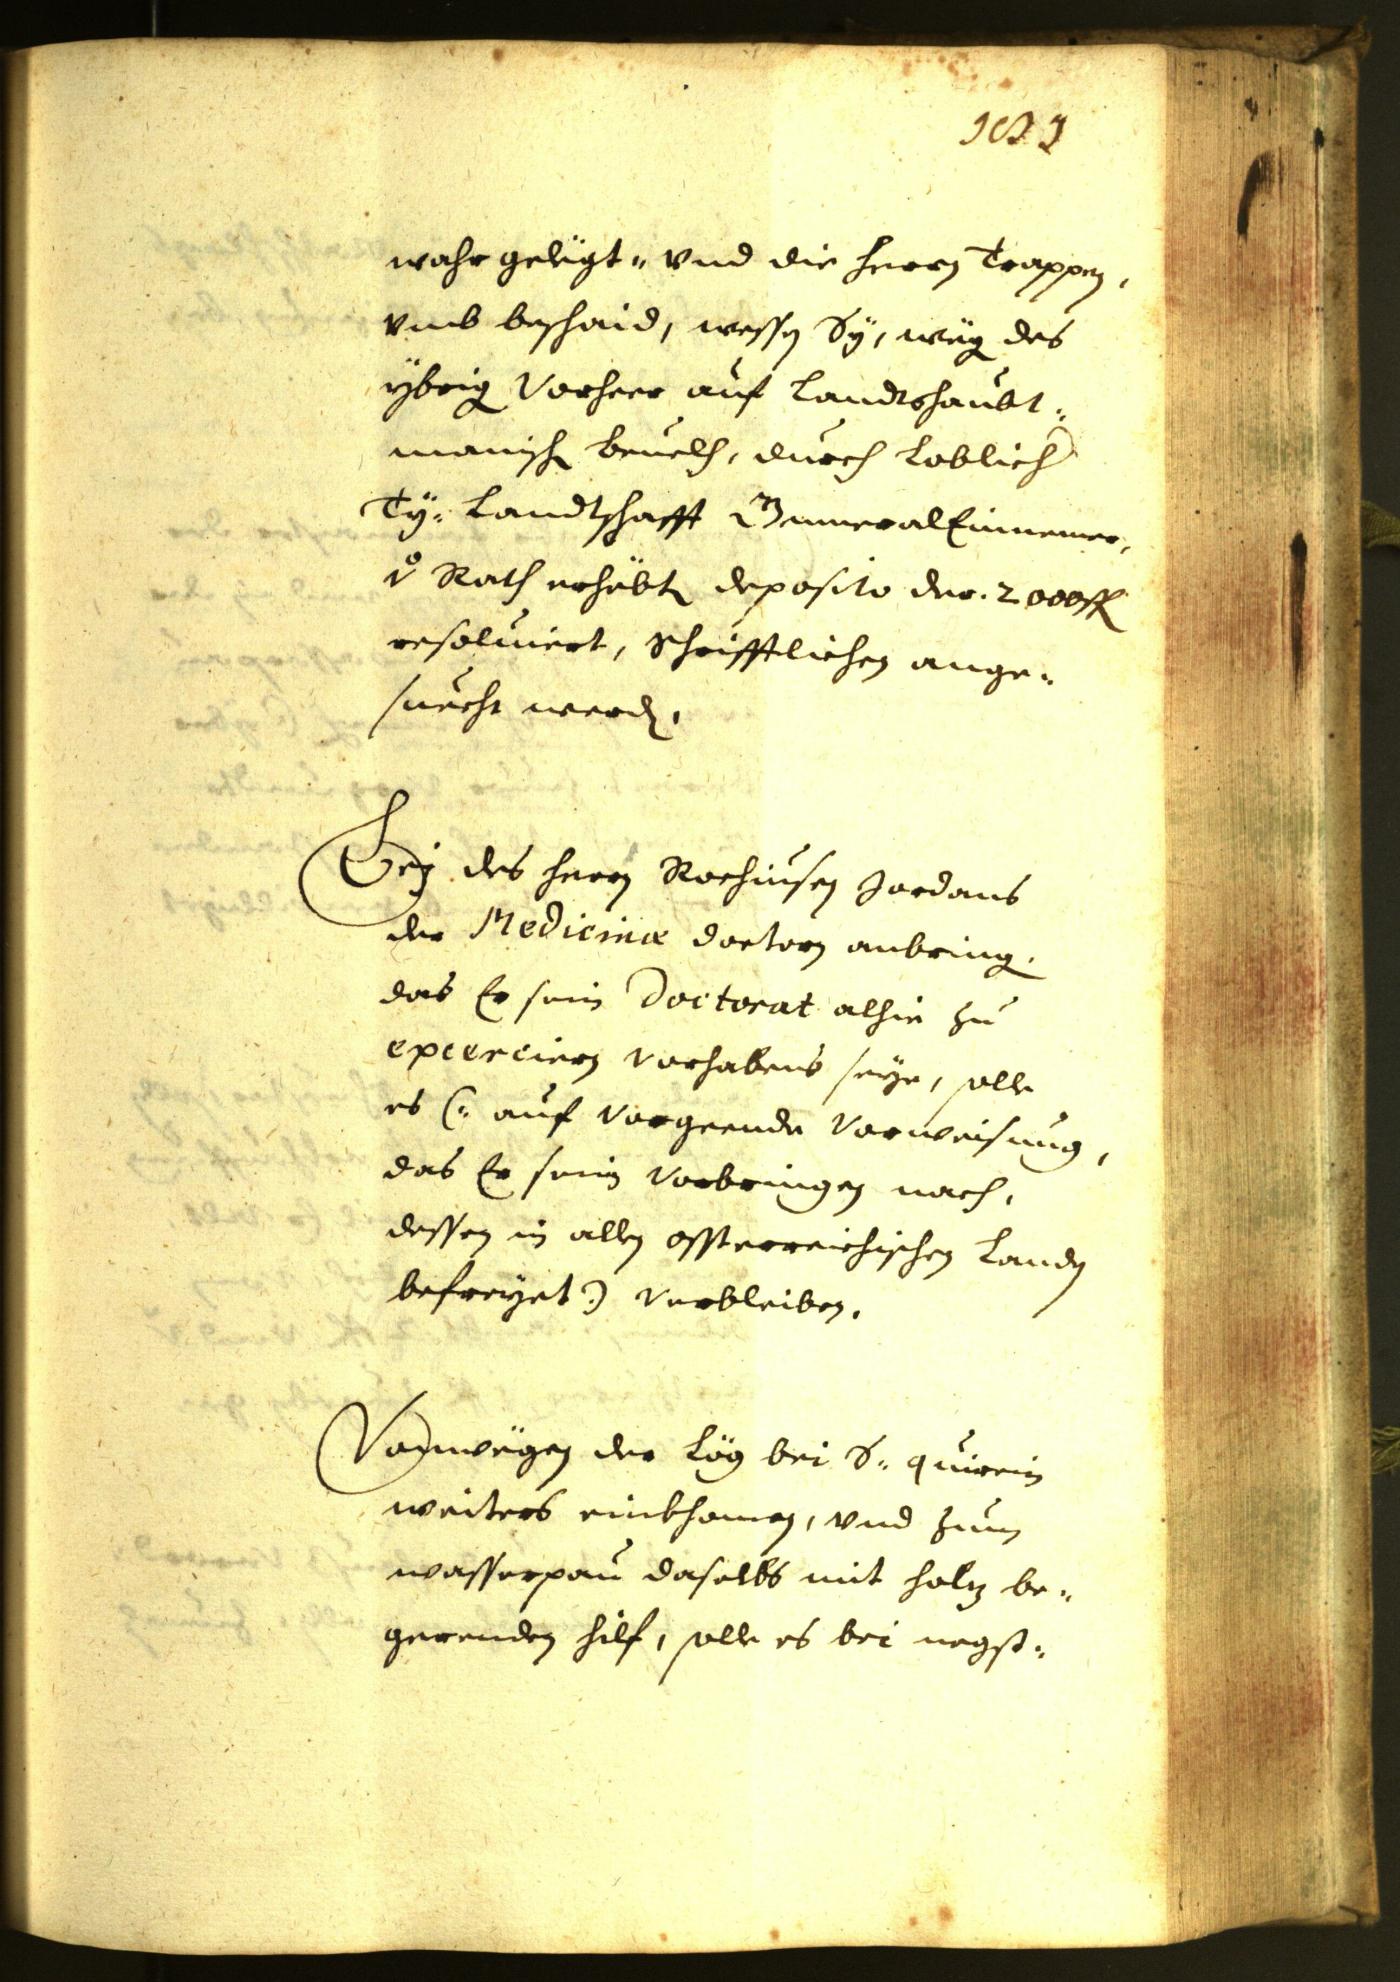 wahr gelegt.. vnd die herrn Trappen,
vmb beschaid, wessen Sÿ, weg des
ÿbrig vorheer auf Landtshaubt=
manisch beuelch, durch Loblich
Tÿ: Landtschafft GeneralEinnemer,
Rath erhebt deposito der 2000 fl
resoluiert, Schrifftlichen ange=
suecht werd,
Bej des herrn Rochiusen Jordans
der Medicinæ doctorn anbring,
das Er sein Doctorat alhie zu
excerciern vorhabens seÿe, solle
es (: auf vorgeende vorweisung,
das Er sein vorbringen nach,
dessen in allen ossterreichischen Landen
befreyet :) verbleiben.
Vonwegen der Leg bei S: quirein
weiters einkhomen, vnd zum
wasserpau daselbs mit holz be=
gerenden hilf, solle es bei negst=